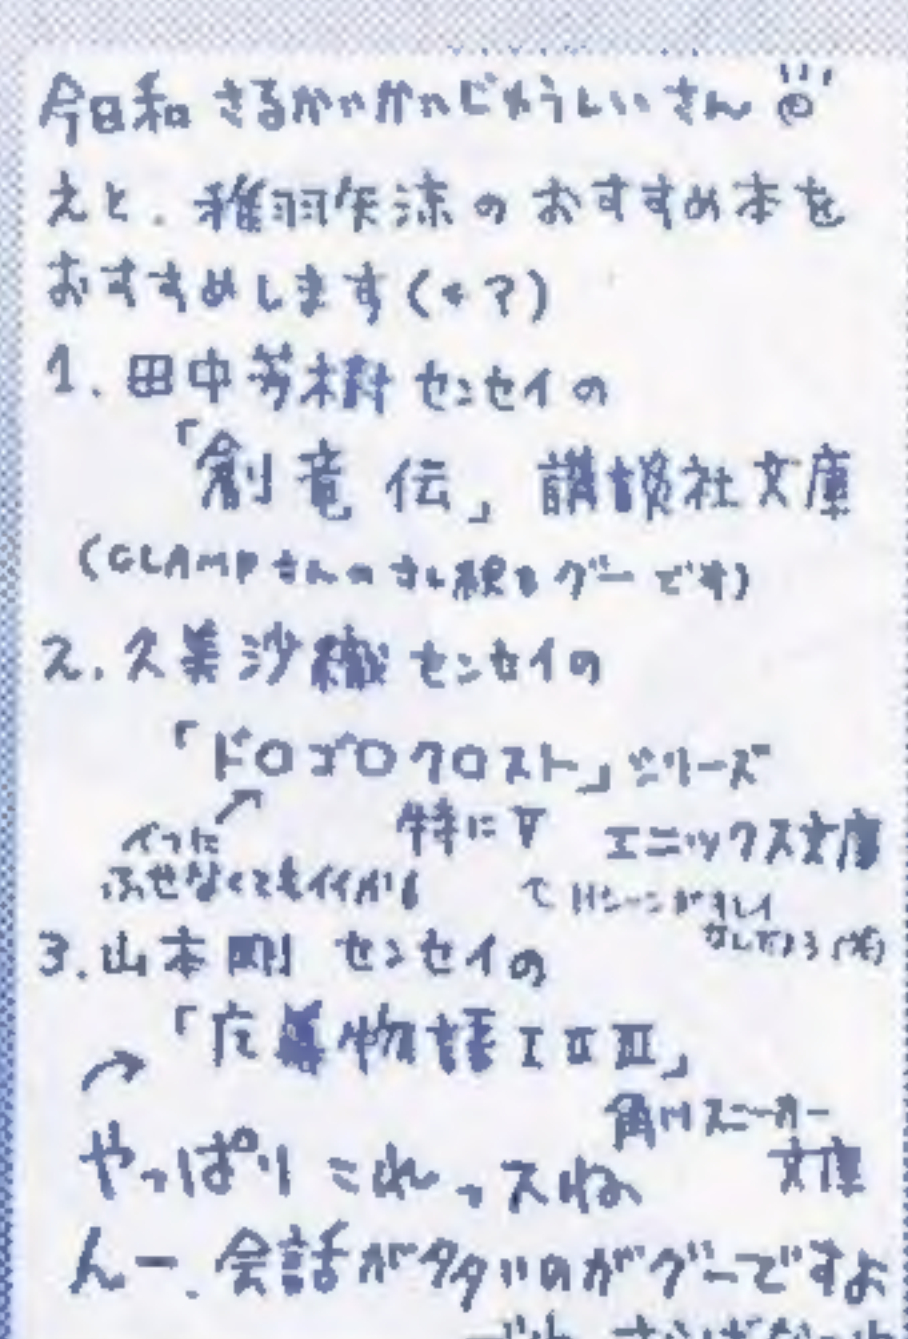 今日和 さるかいかんじゅうしいさん
えと、稚羽矢涼のおすすめ本を
おすすめします(*?)
1.田中芳樹センセイの
「創竜伝」講談社文庫
(CLAMPさんのさし絵もグーです)
2.久美沙織センセイの
「ドロゴロクロスト」シリーズ
特にV エニックス文庫
べつに
ふせなくてもイイかも
てHシーンがキレイ
3.山本剛センセイの
「応募物語ⅠⅡⅢ」
角川スニーカー
文庫
やっぱりこれっスね
んー、会話がタダいのがグーですよ